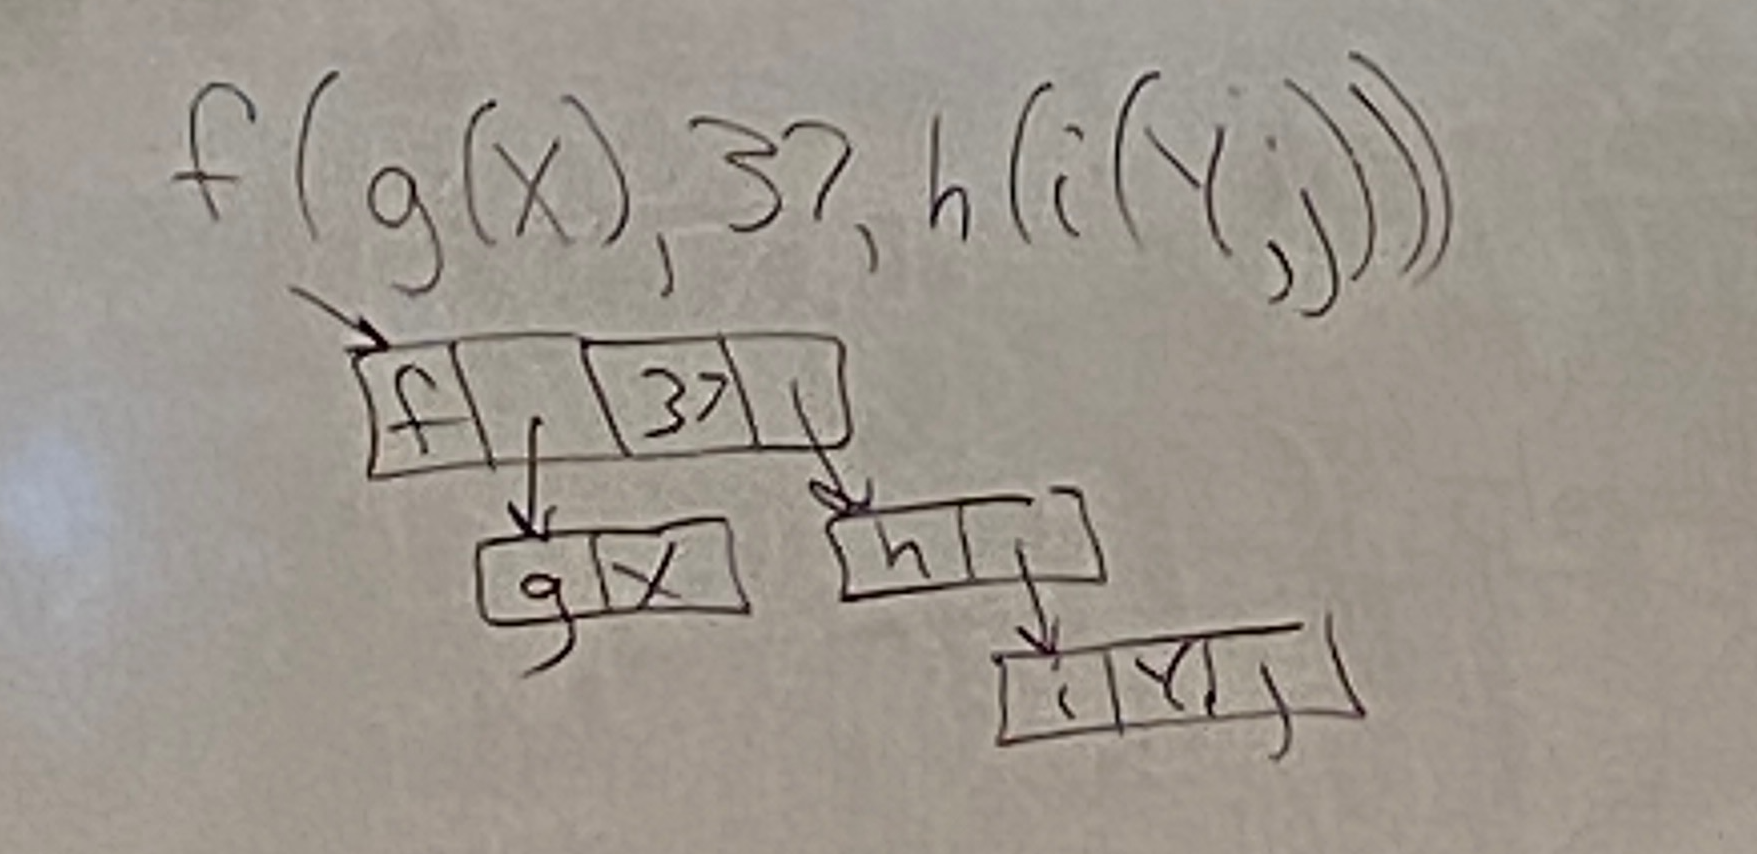 f(g(X), 37, h(i(Y,j)))
f 37
g X
h
i Y j